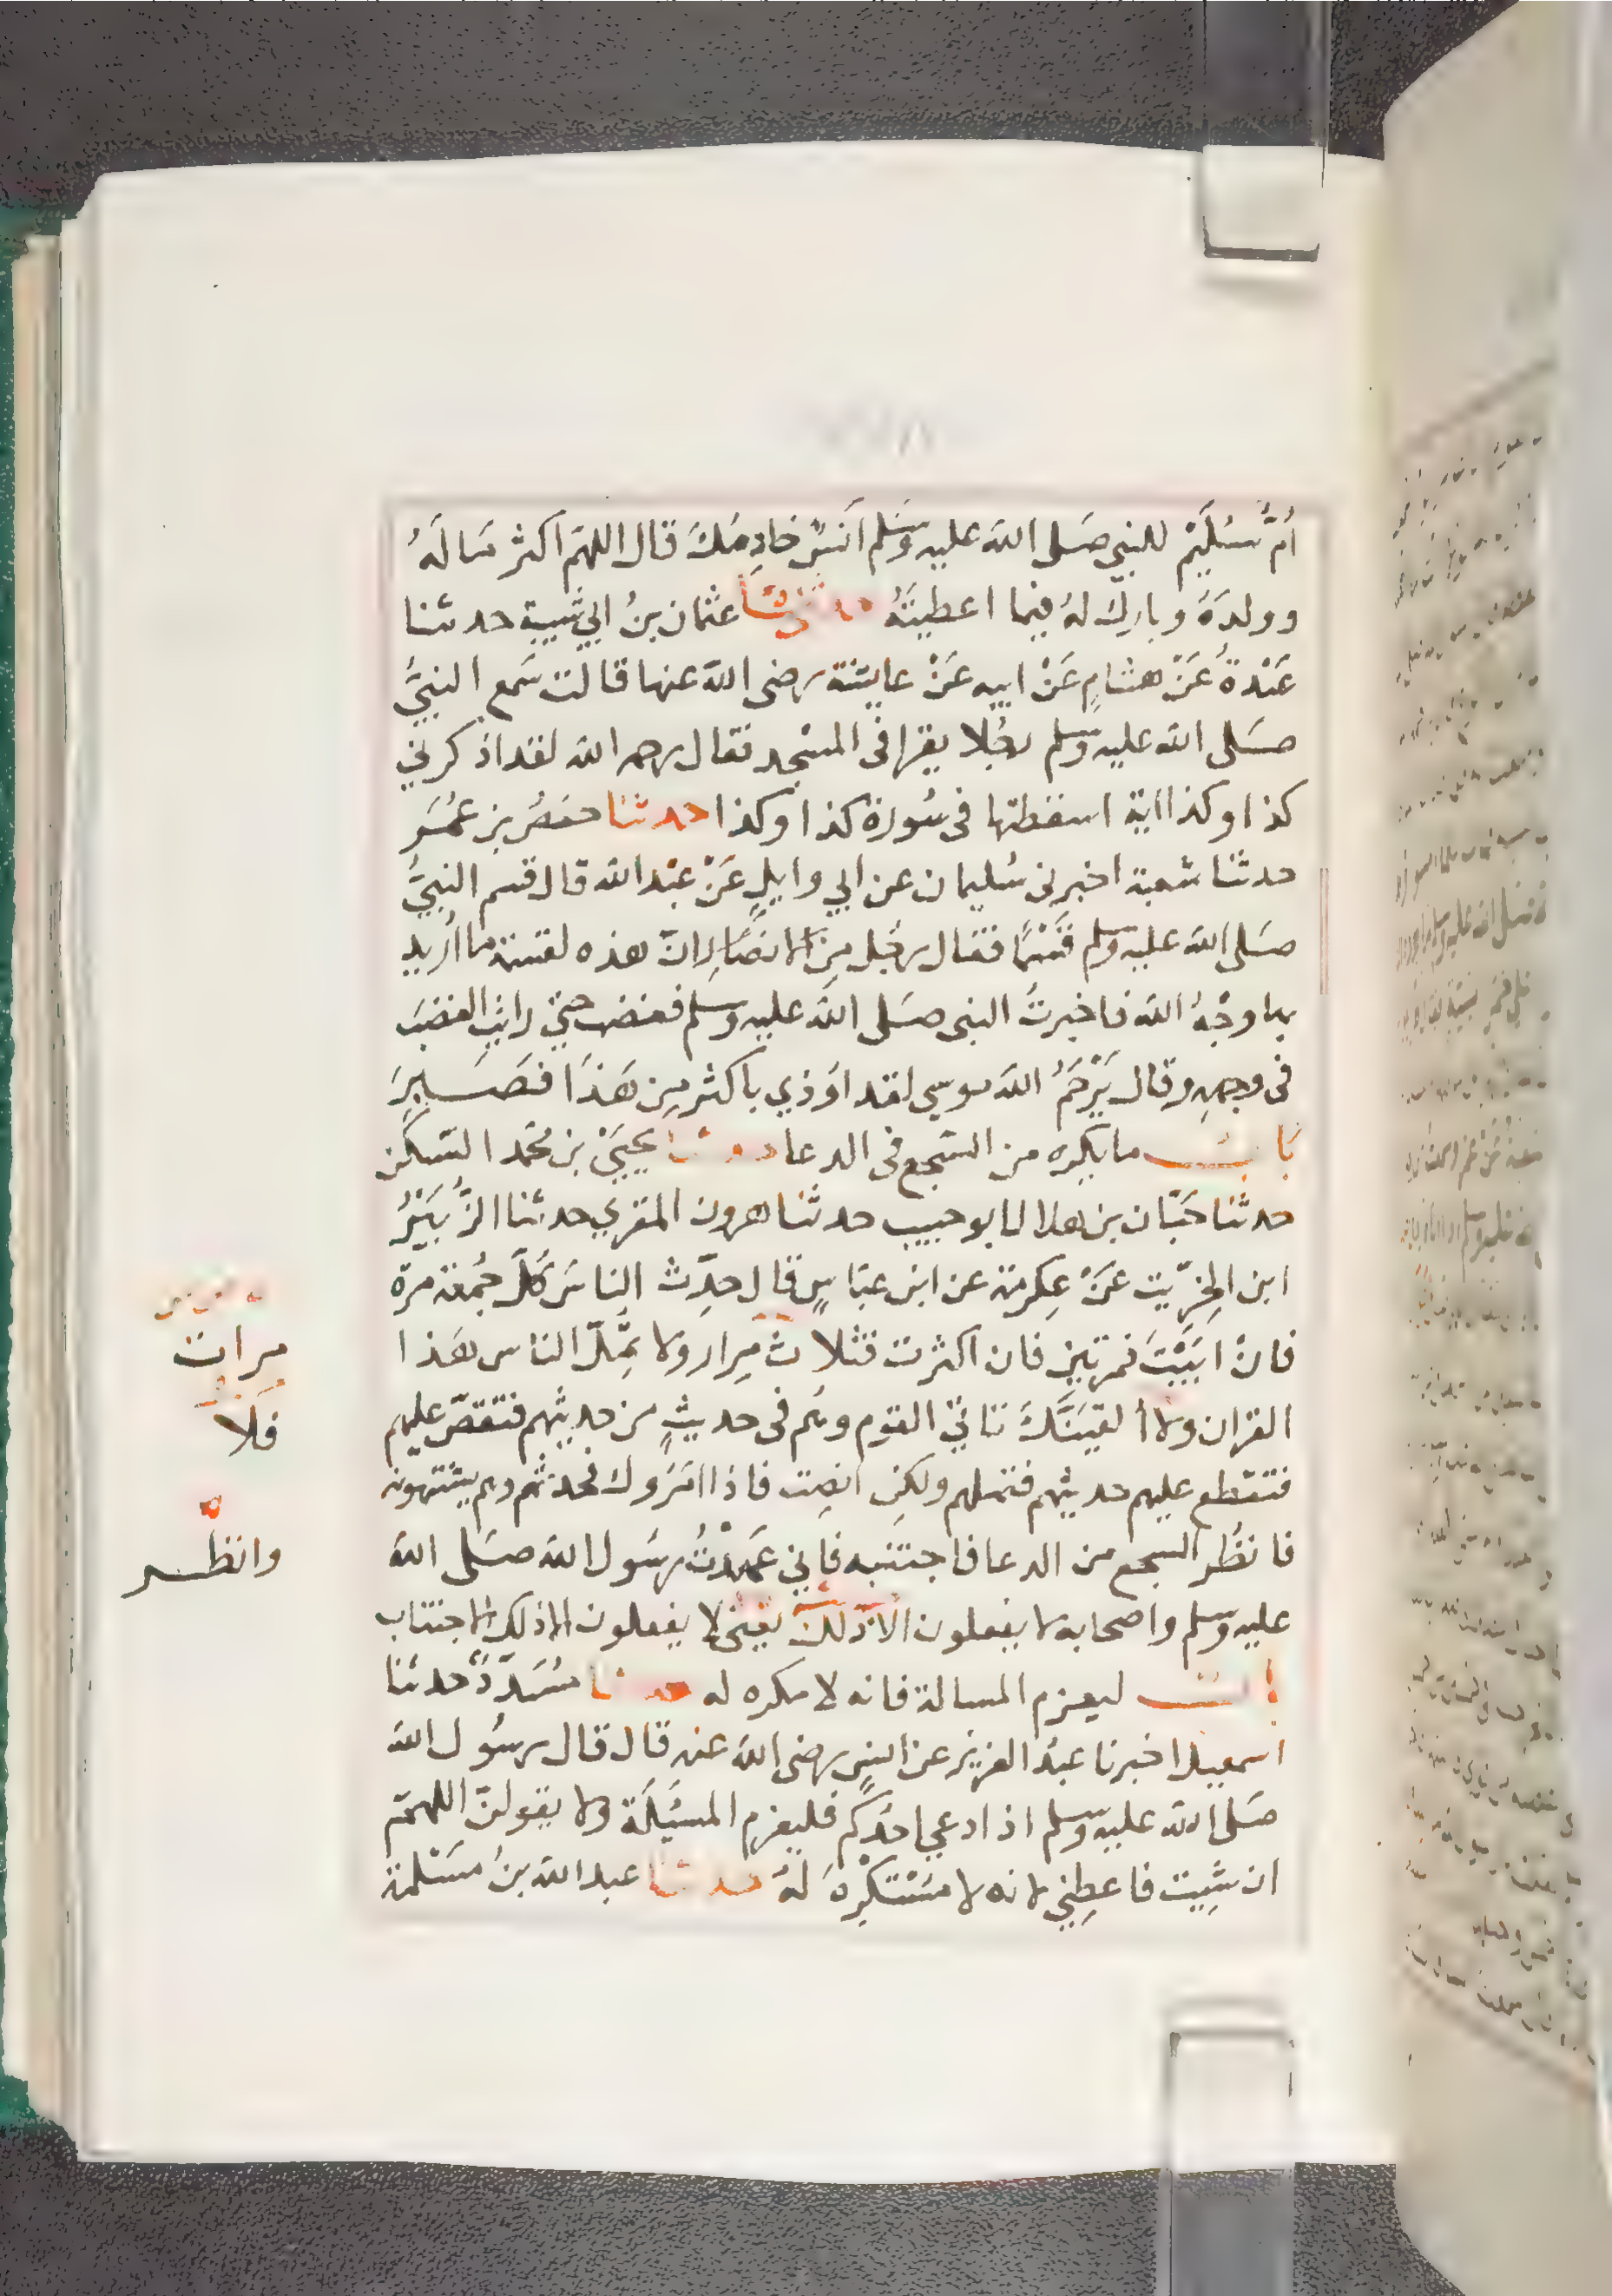 أمُّ سُلَيْم للنبي صَلى الله عليه وسَلم اَنسٌ خادِمُكَ قال اللهمّ اكثر مَالَهُ
وولدَهُ وبارك لهُ فيما اعطيتَهُ حدثنا عثمان بنُ ابي شيبة حدثنا
عَبْدةُ عَنْ هشامٍ عَنْ ابيه عَنْ عايشة رضى الله عنها قالت سَمع النبيُّ
صَلى الله عليه وسلم رجُلا يقرا فى المسْجد فقال رحمه الله لقد اذكرني
كذا وكذا اية اسقطتها فى سُورة كذا وكذا حدثنا حفصُ بن عُمَر
حدثنا شعبة اخبرنى سُليمان عن ابي وايلٍ عَنْ عبْد الله قال قسم النبيُّ
صَلى الله عليه وسلم قَسْمًا فقال رجُل مِن الانصَارِ انّ هذه لقسمة ما اُريد
بها وجْهُ الله فاخبرتُ النبى صَلى الله عليه وسلم فغضب حتيّ رايت الغضبَ
فى وجههِ وقال يَرْحَمُ الله موسي لقد اوذي باكثر مِن هَذَا فصَبرَ
بَابُ ما يكره من السّجع فى الدعا حدثنا يحييَ بن مُحمّد السّكن
حدثنا حَبّان بن هلال ابو حبيب حدثنا هرون المقري حدثنا الزُّبَيْرُ
ابن الخِرّيت عَنْ عِكرمة عن ابن عبّاسٍ قال حدِّث الناسَ كلّ جُمعة مرة
فانْ ابَيْتَ فمرتين فان اكثرت فثلاث مِرار ولا تمِّلّ الناس هَذا
القران ولا اُلفِيَنَّكَ تاتيّ القوم وهُم فى حديثٍ من حديثهم فتقصّ عليهم
فتقطع عليهم حديثهم فتملهم ولكنِ انصِت فاذا امَرُوك فحدثهم وهم يشتهونه
فانظُر السجع من الدعا فاجتنبه فاني عَهِدْتُ رسُول الله صَلى الله
عليه وسلم واصحابه لا يفعلون الا ذلك يعنى لا يفعلون الا ذلك الاجتناب
بابُ ليعزم المسالة فانه لا مكره له حدثنا مُسَدّدٌ حدثنا
اسمعيل اخبرنا عبدُ العزيز عن انسٍ رضى الله عنه قال قال رسُول الله
صَلى الله عليه وسلم اذا دعي احدُكم فليعزمِ المسْئلَة ولا يقولنّ اللهمّ
ان شِيت فاعطِني لانه لا مسْتكْرِهَ لَهُ حدثنا عبد الله بنُ مسْلمة
مرات
فلا
وانظر